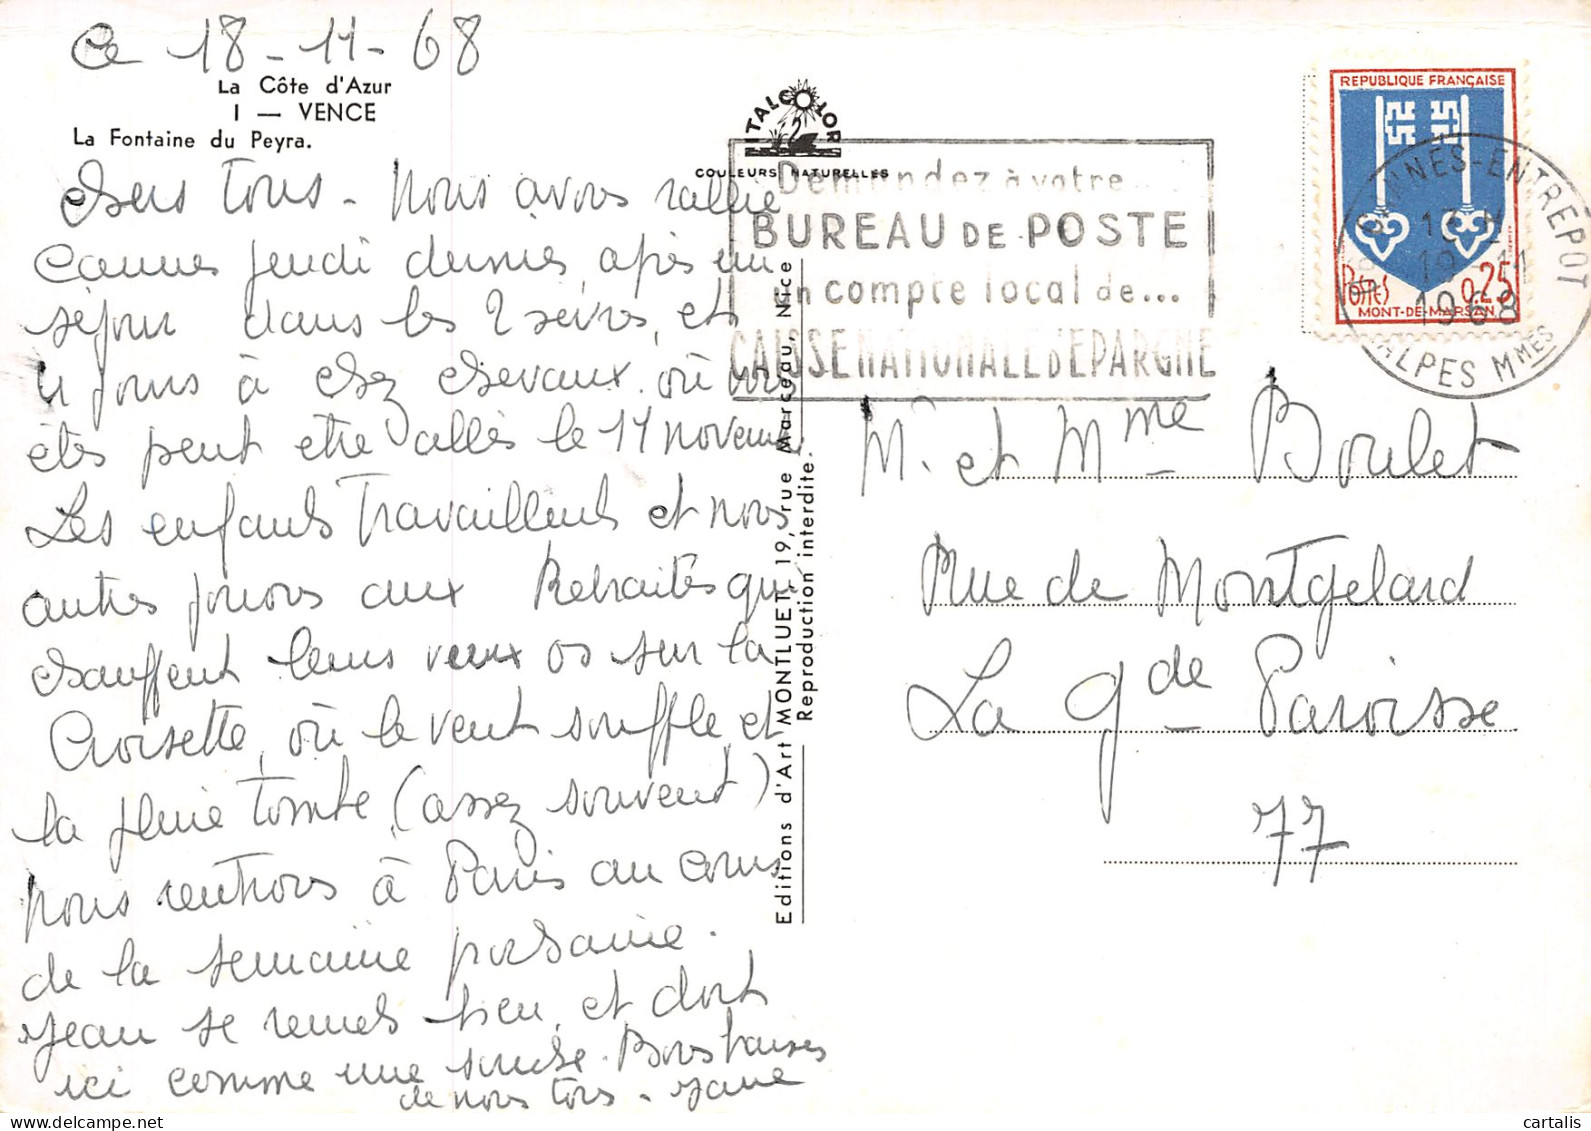 Ce 18-11-68
La Côte d'Azur
I — VENCE
La Fontaine du Peyra.
Chers tous. Nous avons rallié
Cannes jeudi dernier, après un
séjour dans les 2 sèvres, et
4 jours à chez chevaux où vous
êtes peut etre allés le 11 novembre.
Les enfants travaillent et nous
autres jouons aux Retraités qui
chauffent leurs vieux os sur la
Croisette, où le vent souffle et
la pluie tombe (assez souvent)
nous rentrons à Paris au cours
de la semaine prochaine.
Jean se remet bien, et dort
ici comme une souche. Bons baisers
de nous tous.
ITALCOLOR
COULEURS NATURELLES
Editions d'Art MONTLUET, 19, rue Marceau, Nice
Reproduction interdite.
Demandez à votre...
BUREAU DE POSTE
un compte local de...
CAISSE NATIONALE D'EPARGNE
REPUBLIQUE FRANÇAISE
POSTES 0,25
MONT-DE-MARSAN
CANNES-ENTREPOT
19-11
1968
ALPES Mmes
M. et Mme Boulet
Rue de Montgelard
La Gde Paroisse
77
cartalis